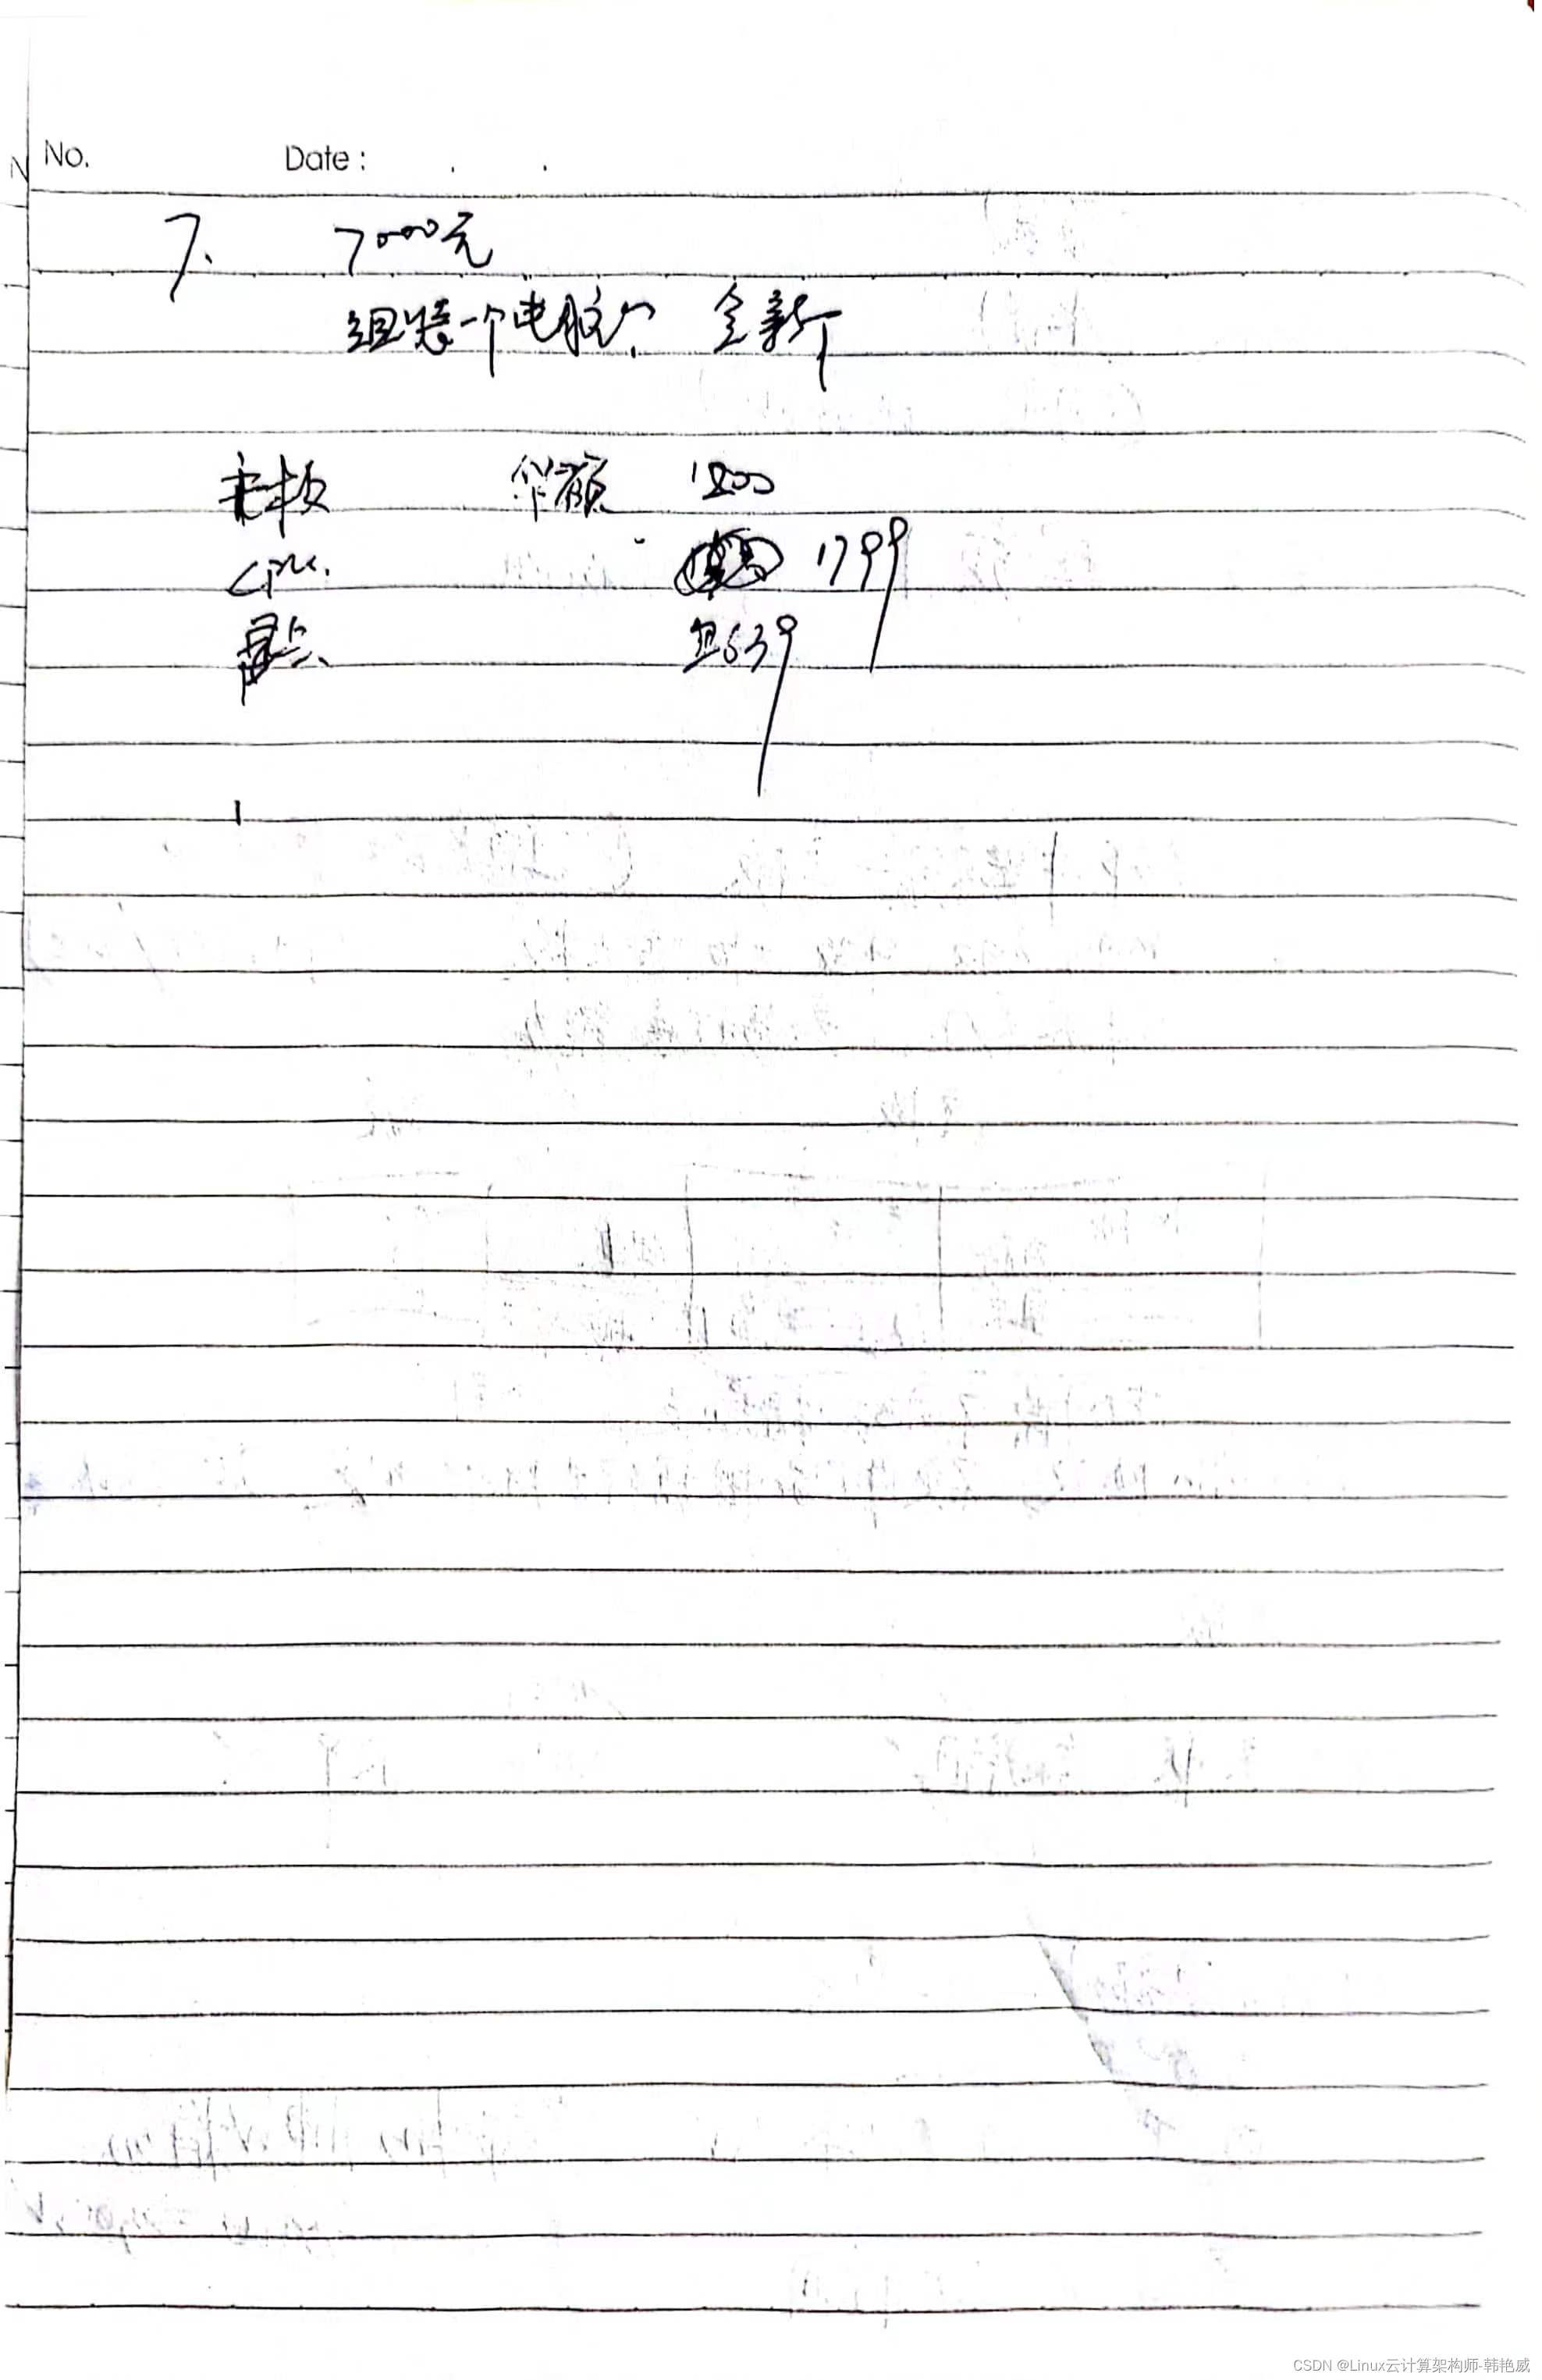 No. Date :
7. 7000元
组装一个电脑? 全新
主板 华硕 1200
CPU. 1799
639
CSDN @Linux云计算架构师-韩艳威